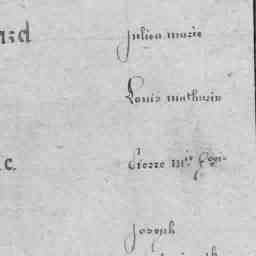 ard
julien marie
Louis mathurin
c.
Pierre m.ie
joseph